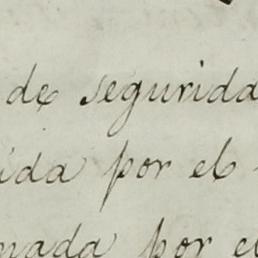 de segurida
ida por el
nada por e